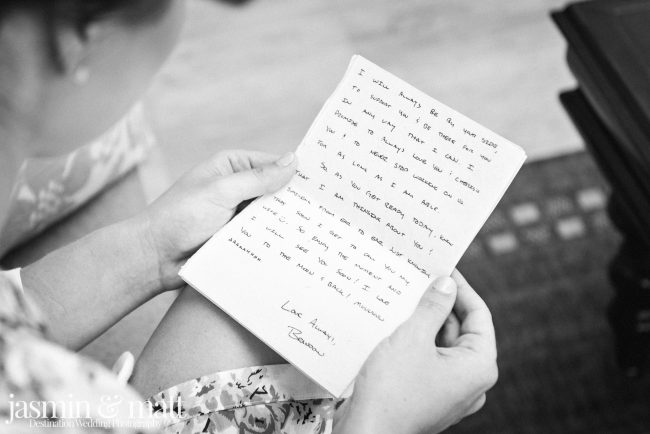 I WILL ALWAYS BE BY YOUR SIDE,
TO SUPPORT YOU & BE THERE FOR YOU
IN ANY WAY THAT I CAN. I
PROMISE TO ALWAYS LOVE YOU & CHERISH
YOU & TO NEVER STOP WORKING ON US
FOR AS LONG AS I AM ABLE.
SO AS YOU GET READY TODAY, KNOW
THAT I AM THINKING ABOUT YOU &
SMILING FROM EAR TO EAR JUST KNOWING
THAT SOON I GET TO CALL YOU MY
WIFE. SO ENJOY THE MOMENT AND
I WILL SEE YOU SOON! I LOVE
YOU TO THE MOON & BACK!
LOVE ALWAYS,
BRANDON
jasmin & matt
Destination Wedding Photography